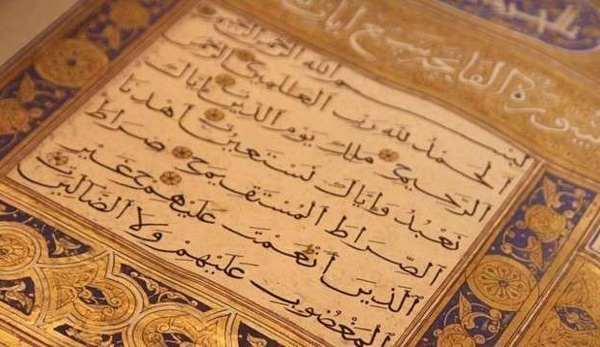 سورة الفاتحة سبع آيات
بسم الله الرحمن الرحيم
الحمد لله رب العالمين الرحمن
الرحيم ملك يوم الدين اياك
نعبد واياك نستعين اهدنا
الصراط المستقيم صراط
الذين أنعمت عليهم غير
المغضوب عليهم ولا الضالين